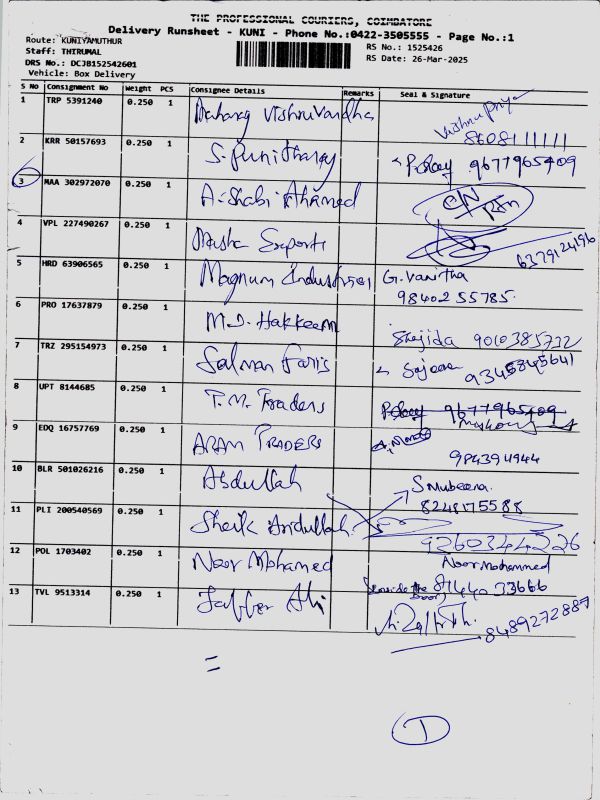 THE PROFESSIONAL COURIERS, COIMBATORE
Delivery Runsheet - KUNI - Phone No.:0422-3505555 - Page No.:1
Route: KUNIYAMUTHUR
RS No.: 1525426
Staff: THIRUMAL
RS Date: 26-Mar-2025
DRS No.: DCJB152542601
Vehicle: Box Delivery
S No Consignment No Weight PCS Consignee Details Remarks Seal & Signature
1 TRP 5391240 0.250 1 Vishnu Priya
8608111111
2 KRR 50157693 0.250 1 9677965409
3 MAA 302972070 0.250 1 A. Shabi Ahamed
4 VPL 227490267 0.250 1 6379124196
5 HRD 63906565 0.250 1 Magnum Industries G. Vanitha
98402 55785.
6 PRO 17637879 0.250 1 M.I. Hakkeem Shajida
7 TRZ 295154973 0.250 1 Salman Faris Sajeena
8 UPT 8144685 0.250 1 T.M. Traders 9677965409
9 EDQ 16757769 0.250 1 ARAM TRADERS
10 BLR 501026216 0.250 1 Abdullah S Mubeena.
8248175588
11 PLI 200540569 0.250 1 Sheik
9260344226
12 POL 1703402 0.250 1 Noor Mohamed Noor Mohammed
13 TVL 9513314 0.250 1 Jaffer Ali
8489272887
1